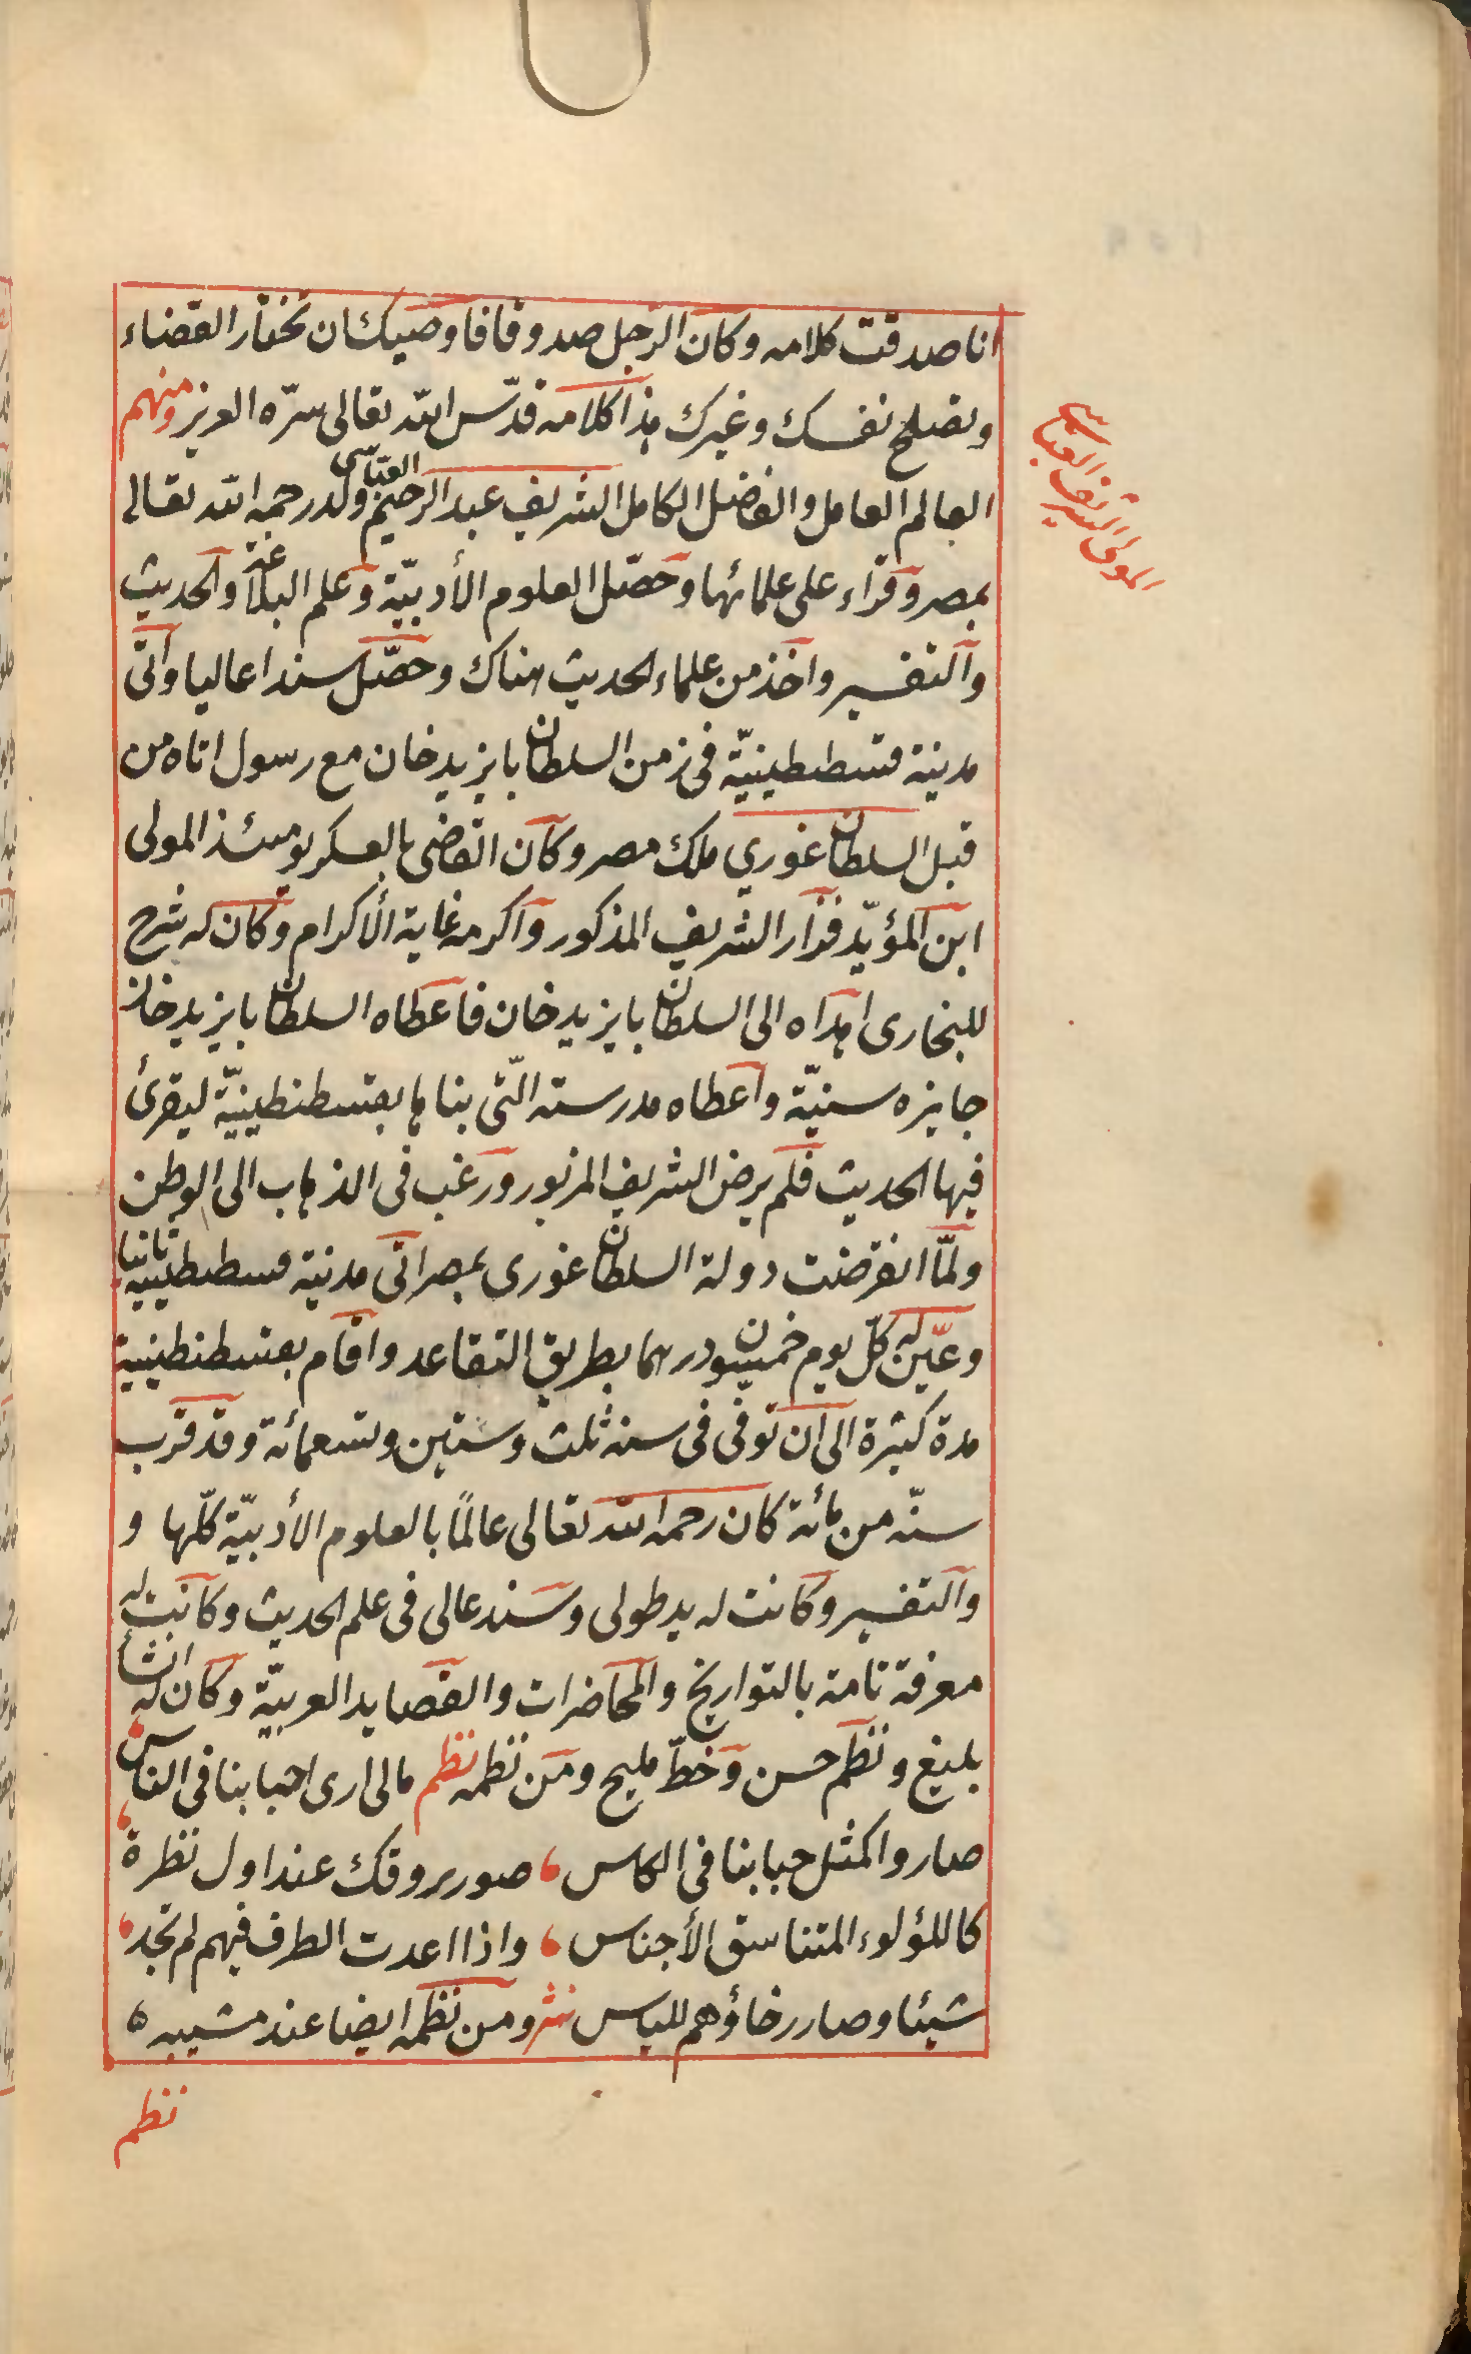 انا صدقت كلامه وكان الرّجل صدوقا فاوصيك ان تختار القضاء
وتصلح نفسك وغيرك هذا كلامه قدّس الله تعالى سرّه العزيز ومنهم
العالم العامل والفاضل الكامل الشريف عبد الرحيم العبّاسى ولد رحمه الله تعالى
بمصر وقراء على علمائها وحصّل العلوم الأدبيّة وعلم البلاغة والحديث
والتفسير واخذ من علماء الحديث هناك وحصّل سندا عاليا واتى
مدينة قسطنطينيّة فى زمن السلطان بايزيد خان مع رسول اتاه من
قبل السلطان غوري ملك مصر وكان القاضى بالعسكر يومئذ المولى
ابن المؤيّد فزار الشريف المذكور واكرمه غاية الأكرام وكان له شرح
للبخارى اهداه الى السلطان بايزيد خان فاعطاه السلطان بايزيد خان
جايزه سنيّة واعطاه مدرسته الّتى بناها بقسطنطينيّة ليقرئ
فيها الحديث فلم يرض الشريف المزبور ورغب فى الذهاب الى الوطن
ولمّا انقرضت دولة السلطان غورى بمصر اتى مدينة قسطنطينية ثانيا
وعيّن له كلّ يوم خمسون درهما بطريق التقاعد واقام بقسطنطينية
مدة كثيرة الى ان توفى فى سنه ثلث وستين وتسعمائة وقد قرب
سنّه من مائة كان رحمه الله تعالى عالمًا بالعلوم الأدبيّة كلّها و
والتفسير وكانت له يد طولى وسند عالى فى علم الحديث وكانت له
معرفة تامة بالتواريخ والمحاضرات والقصايد العربيّة وكان له انشأ
بليغ ونظم حسن وخطّ مليح ومن نظمه نظم مالى ارى احبابنا فى الناس
صاروا كمثل حبابنا فى الكاس ، صور يروقك عند اول نظرة ،
كاللؤلوء المتناسق الأجناس ، واذا اعدت الطرف فيهم لم تجد ،
شيئا وصار رخاؤهم للياس نثر ومن نظمه ايضا عند مشيبه
نظم
المولى الشريف العباسى